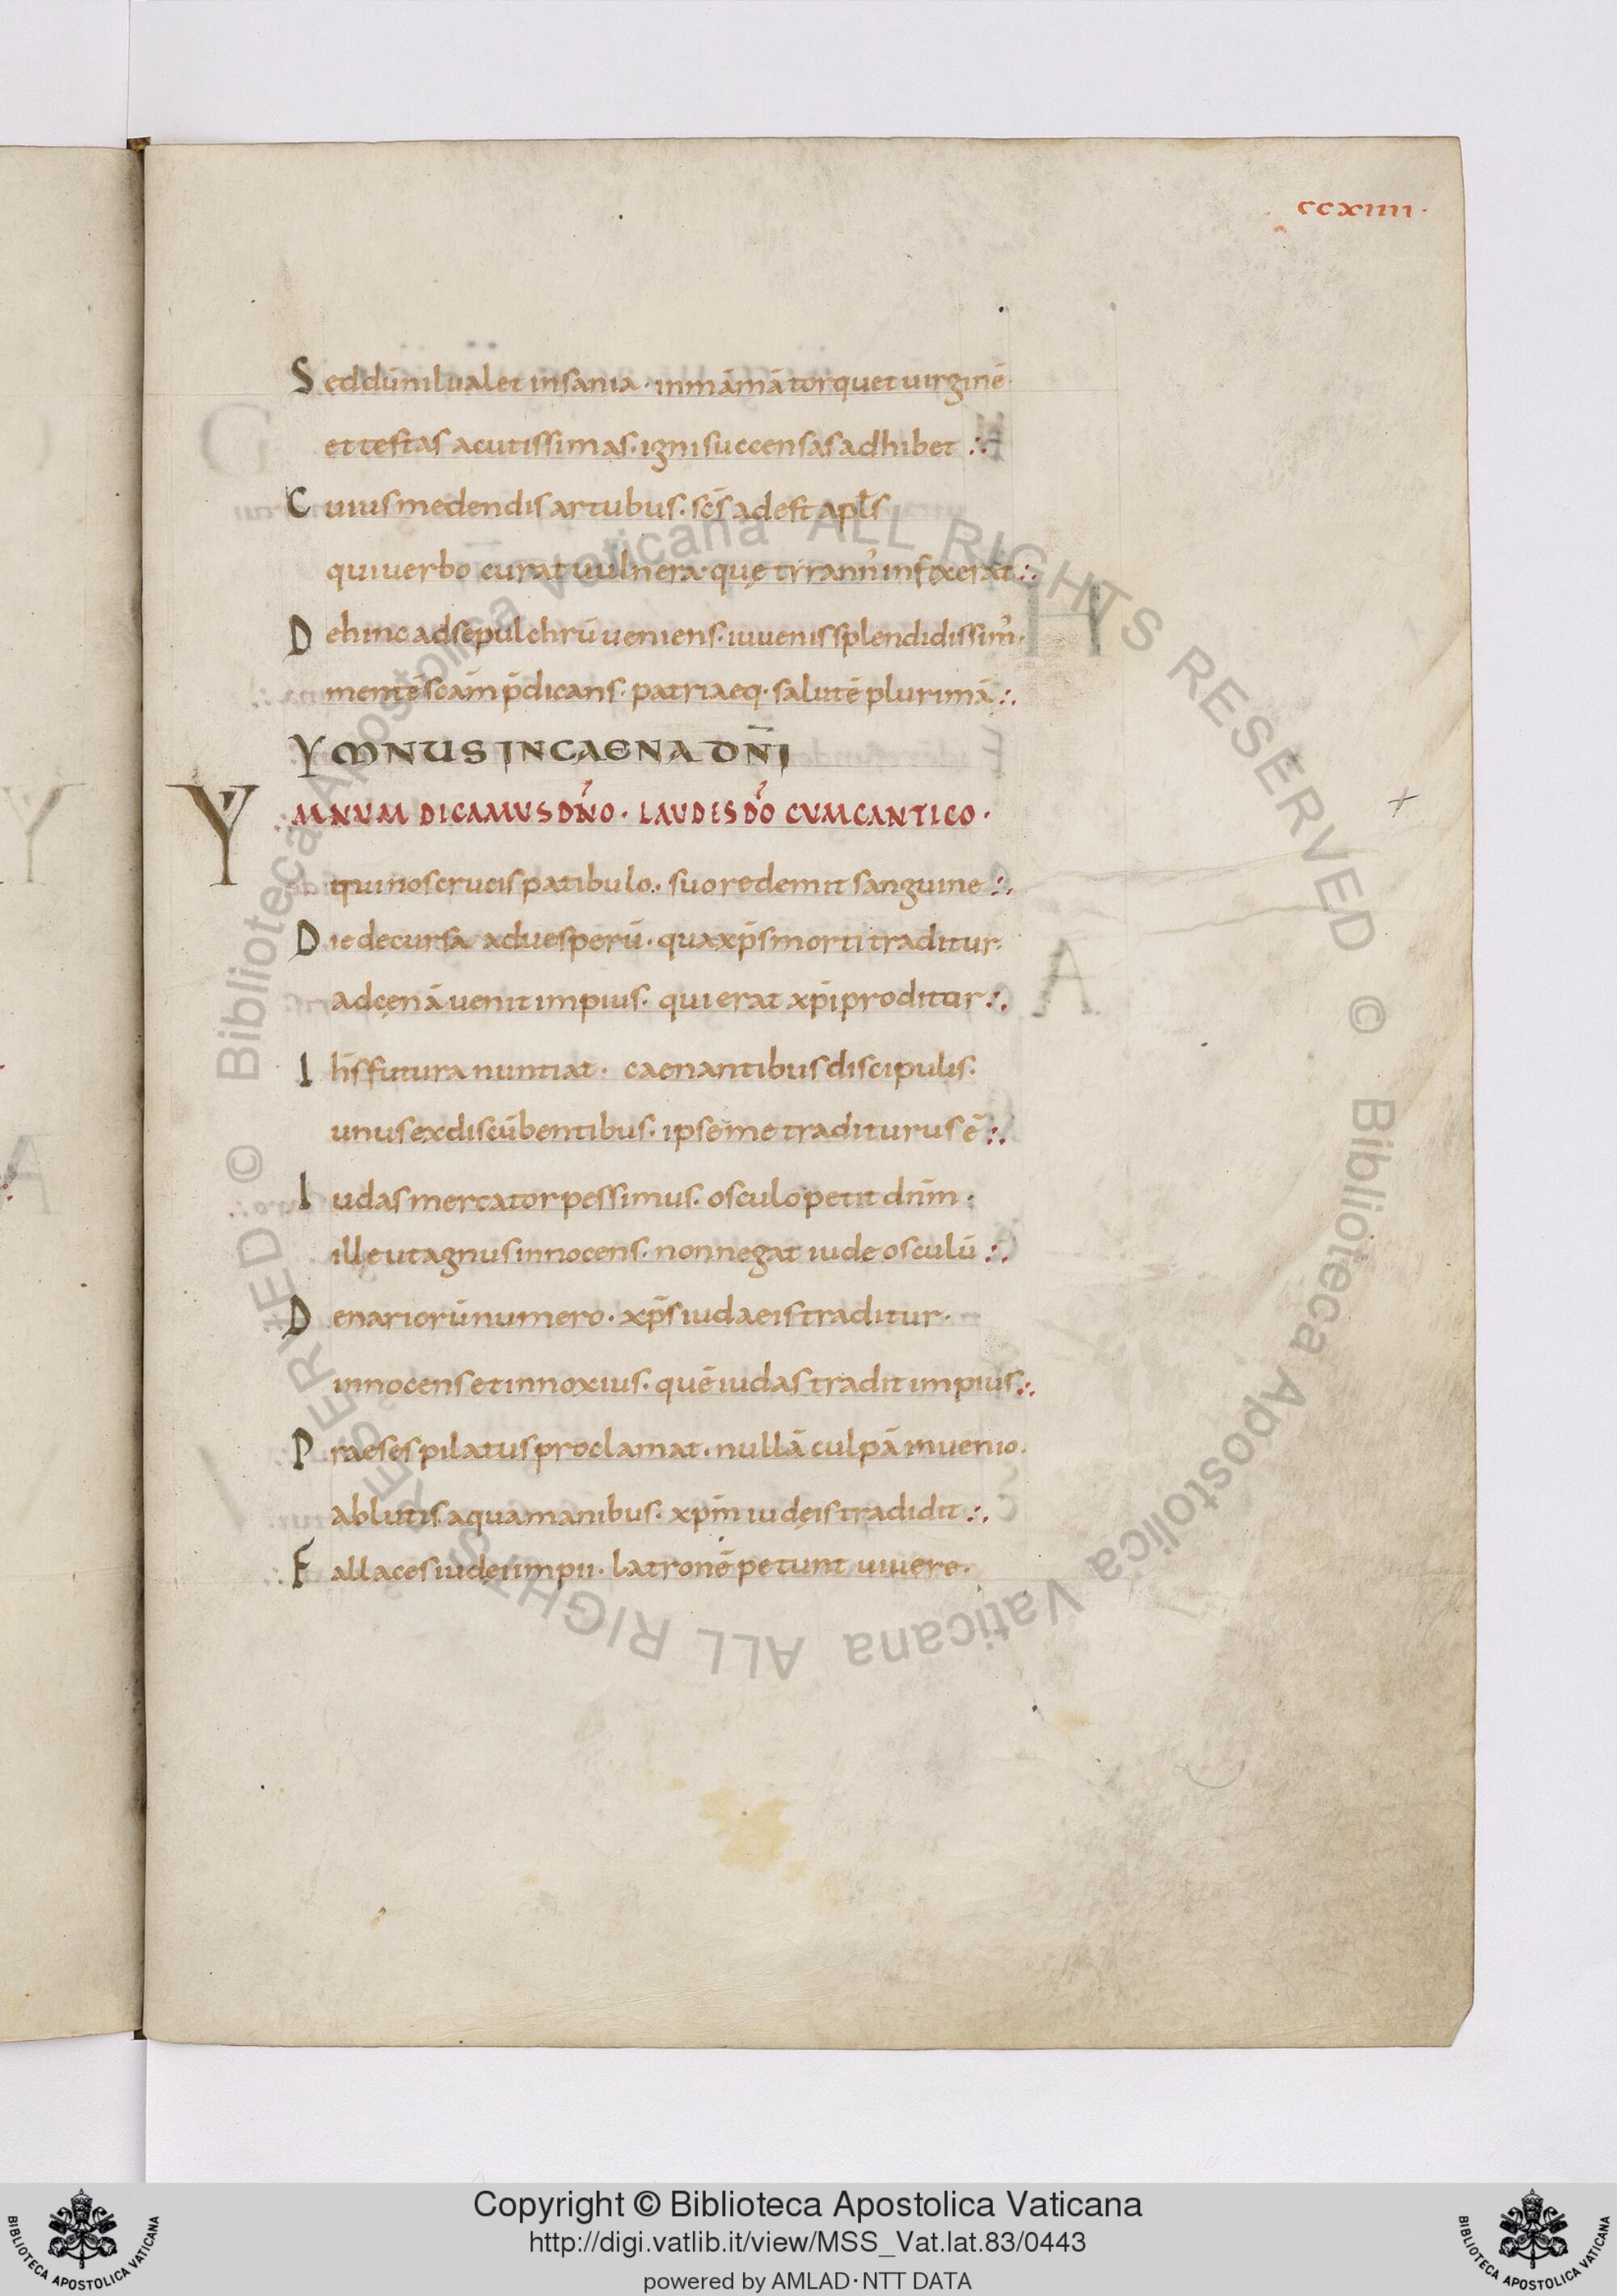 ccxiiii·
Sed dū nil ualet insania · in māmā torquet uirginē·
et testas acutissimas · igni succensas adhibet :·
Cuius medendis artubus · sc̄s adest apl̄s
qui uerbo curat uulnera · quę tirann᾽ infixerat :·
Dehinc ad sepulchrū ueniens · iuuenis splendidissim᾽·
mentē scām p̄dicans · patriaeq· salutē plurimā :·
YMNUS IN CAENA DN̄I
YMNUM DICAMUS DN̄O · LAUDES DŌ CUM CANTICO ·
qui nos crucis patibulo · suo redemit sanguine :·
Die decursa ad uesperū · qua xp̄s morti traditur·
ad cęnā uenit impius · qui erat xp̄i proditor :·
Ih̄s futura nuntiat · caenantibus discipulis·
unus ex discūbentibus · ipse me traditurus ē :·
Iudas mercator pessimus · osculo petit dn̄m ·
ille ut agnus innocens · non negat iude osculū :·
Denariorū numero · xp̄s iudaeis traditur ·
innocens et innoxius · quē iudas tradit impius :·
Praeses pilatus proclamat · nullā culpā inuenio·
ablutis aqua manibus · xp̄m iudęis tradidit :·
Fallaces iudęi impii · latronē petunt uiuere ·
Copyright © Biblioteca Apostolica Vaticana
http://digi.vatlib.it/view/MSS_Vat.lat.83/0443
powered by AMLAD·NTT DATA
BIBLIOTECA APOSTOLICA VATICANA
BIBLIOTECA APOSTOLICA VATICANA
© Biblioteca Apostolica Vaticana ALL RIGHTS RESERVED © Biblioteca Apostolica Vaticana ALL RIGHTS RESERVED